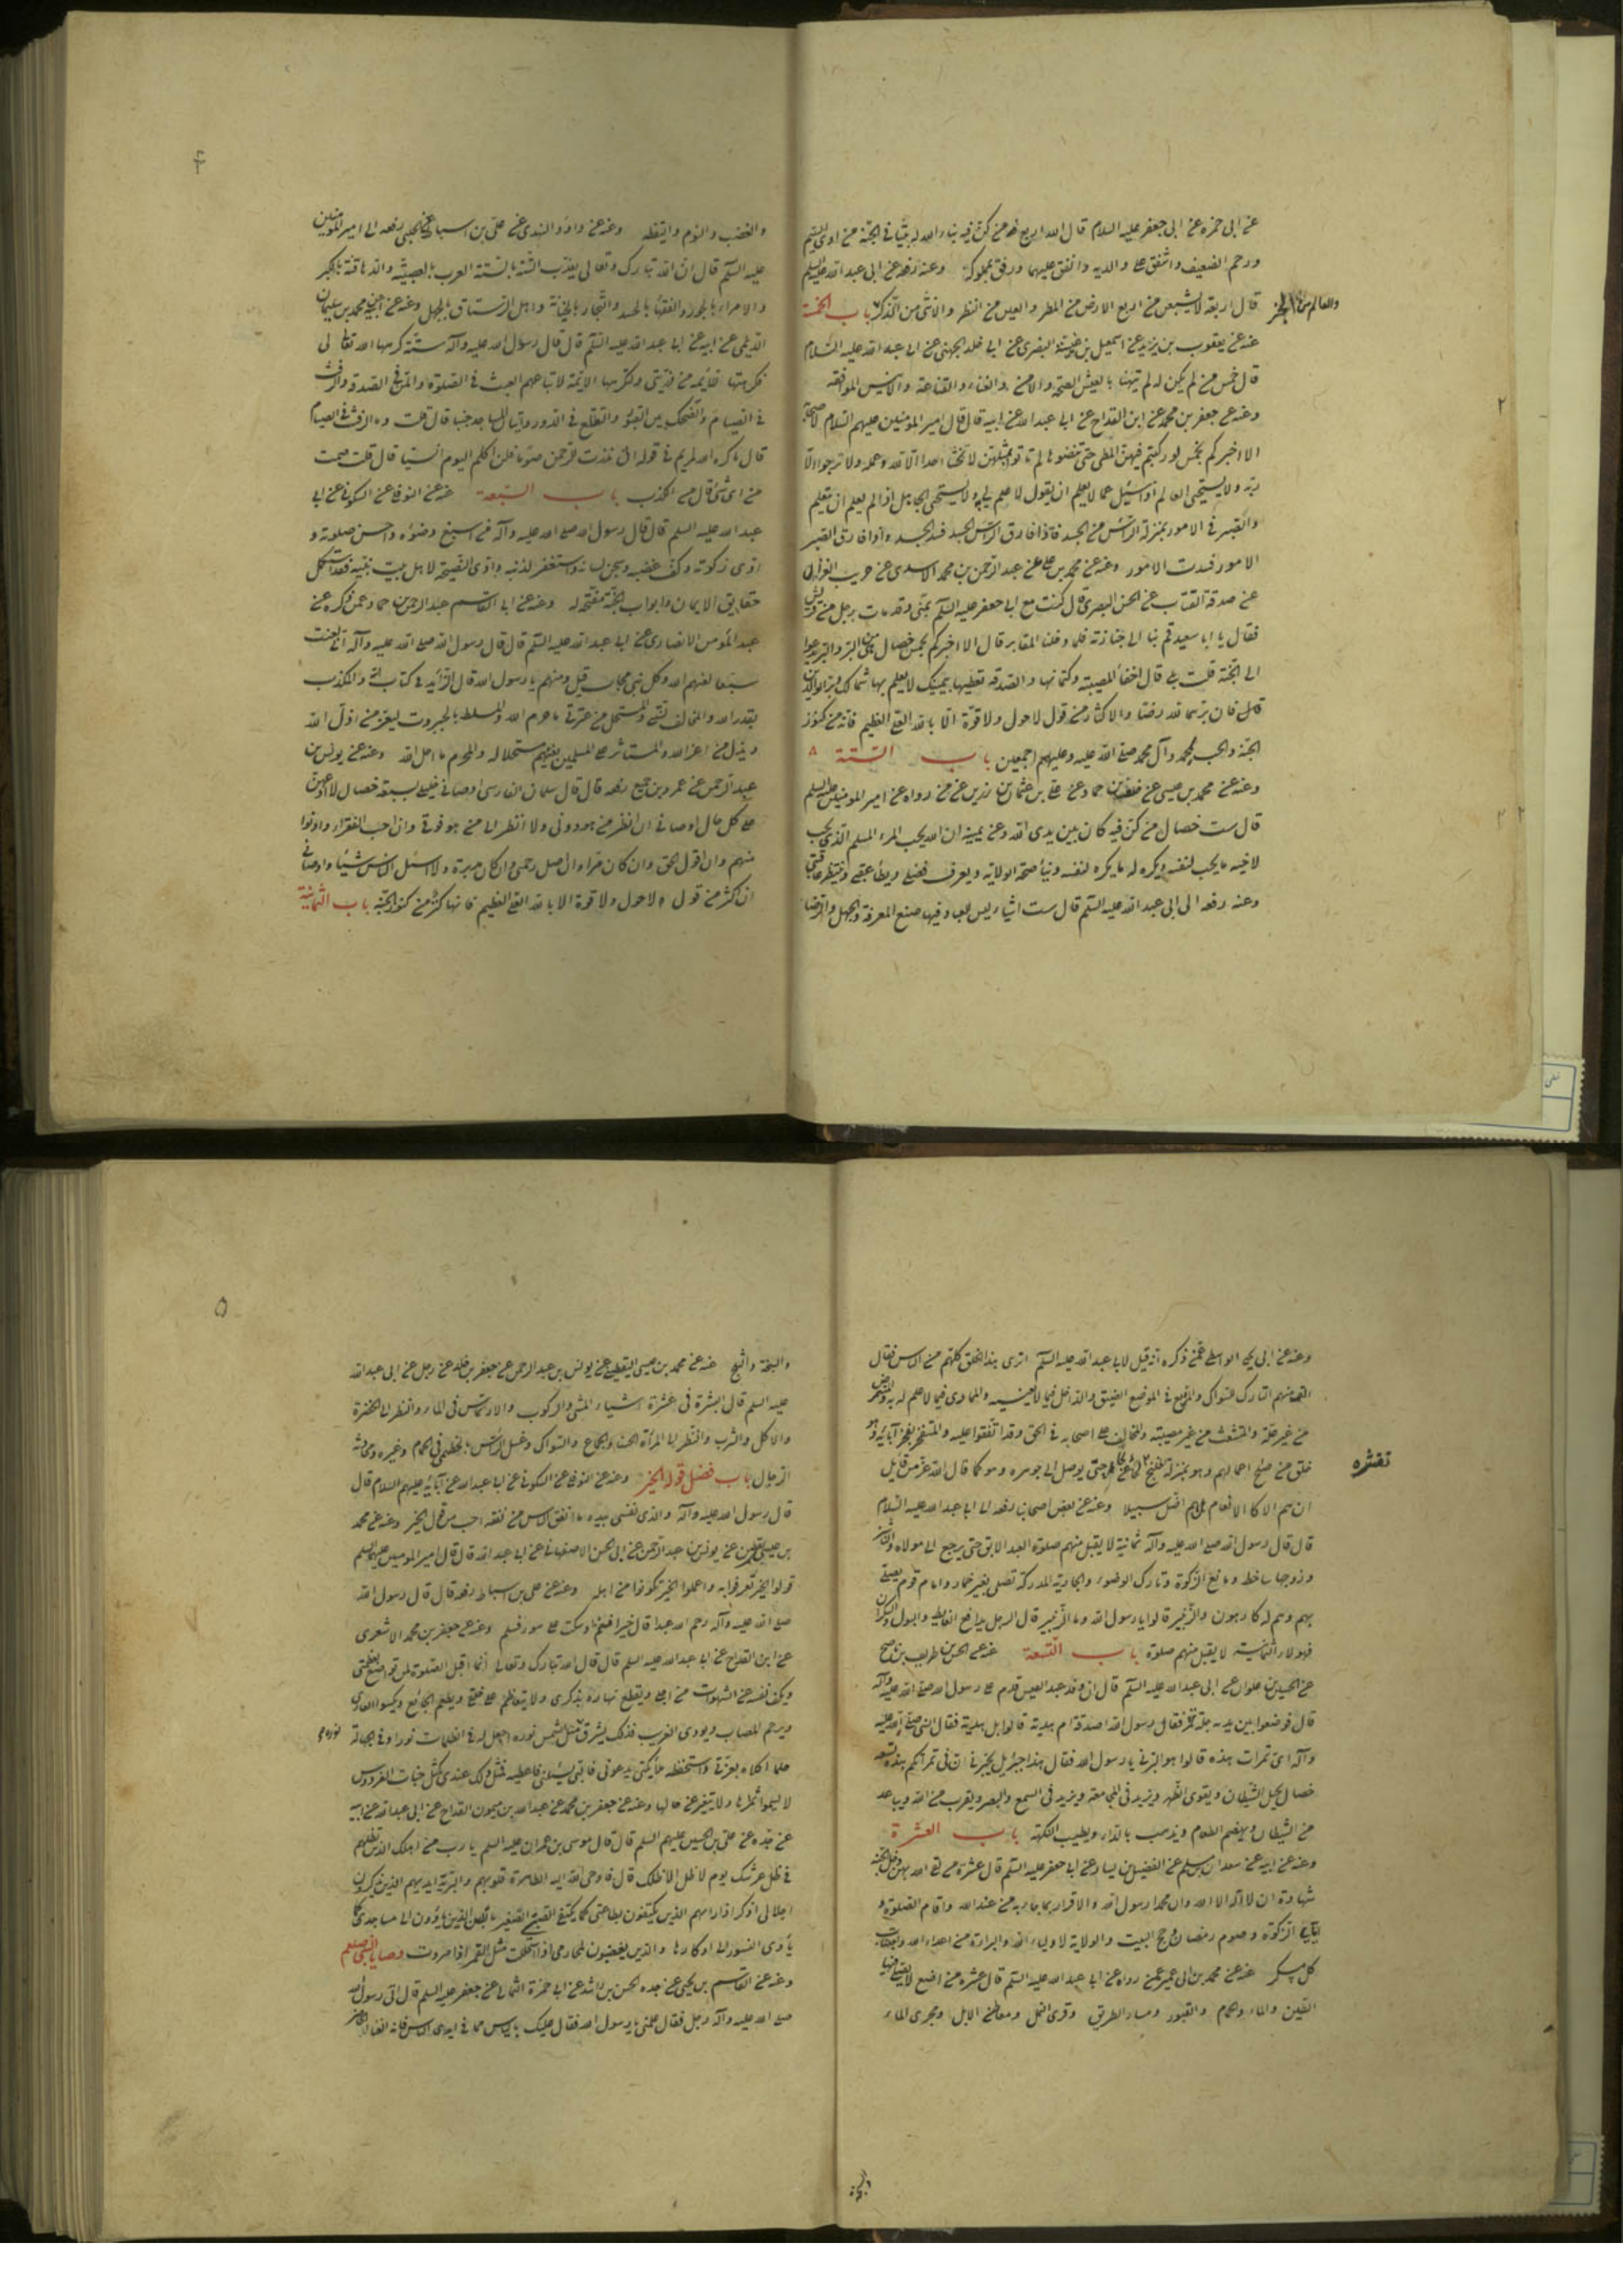 عن ابى حمزه عن ابى جعفر عليه السلام قال اربع من كن فيه بناء الله له بيتا فى الجنة من اوى اليتيم
ورحم الضعيف واشفق على والديه وانفق عليهما ورفق بمملوكه وعنه رفعه عن ابى عبد الله عليه السلم
قال اربعة لا يشبعن من اربع الارض من المطر والعين من النظر والانثى من الذكر باب الخمسة
والعالم من
عنه عن يعقوب بن يزيد عن اسمعيل بن البصرى عن ابى خلد الجهنى عن ابى عبد الله عليه السلام
قال خمس من لم يكن له لم يتهنا بالعيش الصحة والامن والغناء والقناعة والانيس الموافقه
وعنه عن جعفر بن محمد عن ابن القداح عن ابى عبد الله عن ابيه قال قال امير المؤمنين عليهم السلام لاصحابه
الا اخبركم بخمس لو ركبتم فيهن المطى حتى تنضوها لم تاتوا بمثلهن لا يخشى احدا الا الله وعمله ولا يرجوا الا
ربه ولا يستحيى العالم اذا سئل عما لا يعلم ان يقول لا علم لى به ولا يستحيى الجاهل اذا لم يعلم ان يتعلم
والصبر فى الامور بمنزلة الراس من الجسد فاذا فارق الراس الجسد فسد الجسد واذا فارق الصبر
الامور فسدت الامور وعنه عن محمد بن على عن عبد الرحمن بن محمد الاسدى عن حريب الغزال
عن صدقة القتاب عن الحسن البصرى قال كنت مع ابى جعفر عليه السلم بمنى وقد مات رجل من قريش
فقال يا ابا سعيد قم بنا الى جنازته فلما دخلنا المقابر قال الا اخبركم بخمس خصال هى من البر والبر يدعوا
الى الجنة قلت بلى قال اخفاء المصيبة وكتمانها والصدقه تعطيها بيمينك لا يعلم بها شمالك وبر الوالدين
فان برهما لله رضا والاكثار من قول لا حول ولا قوة الا بالله العلى العظيم فانه من كنوز
الجنة والحب لمحمد وآل محمد صلى الله عليه وعليهم اجمعين باب الستة ٨
وعنه عن محمد بن عيسى عن خلف بن حماد عن على بن عثمان بن رزين عن من رواه عن امير المومنين عليه السلم
قال ست خصال من كن فيه كان بين يدى الله وعن يمينه ان الله يحب المرء المسلم الذى يحب
لاخيه ما يحب لنفسه ويكره له ما يكره لنفسه ويناصحه الولاية ويعرف فضلى ويطاء عقبى وينتظر عاقبتى
وعنه رفعه الى ابى عبد الله عليه السلم قال ست اشياء ليس للعباد فيها صنع المعرفة والجهل والرضا
٤
والغضب والنوم واليقظه وعنه عن داود النهدى عن على بن اسباط عن الحلبى رفعه الى امير المومنين
عليه السلم قال ان الله تبارك وتعالى يعذب الستة بالستة العرب بالعصبيته والدهاقنة بالكبر
والامراء بالجور والفقهاء بالحسد والتجار بالخيانة واهل الرستاق بالجهل وعنه عن محمد بن سليمان
الديلمى عن ابيه عن ابى عبد الله عليه السلم قال قال رسول الله صلى الله عليه وآله ستة كرهها الله تعالى لى
فكرهتها للائمة من ذريتى ولتكرهها الائمة لاتباعهم العبث فى الصلوة والمن فى الصدقة والرفث
فى الصيام والضحك بين القبور والتطلع فى الدور واتيان المساجد جنبا قال قلت وما الرفث فى الصيام
قال ما كره الله لمريم فى قوله انى نذرت للرحمن صوما فلن اكلم اليوم انسيا قال قلت صمت
من اى شئ قال من الكذب باب السبعة عنه عن النوفلى عن السكونى عن ابى
عبد الله عليه السلم قال قال رسول الله صلى الله عليه وآله من اسبغ وضوئه واحسن صلوته و
ادى زكوته وكف غضبه وسجن لسانه واستغفر لذنبه وادى النصيحة لاهل بيت نبيه فقد استكمل
حقايق الايمان وابواب الجنة مفتحة له وعنه عن ابى القاسم عبد الرحمن بن حماد عمن ذكره عن
عبد المؤمن الانصارى عن ابى عبد الله عليه السلم قال قال رسول الله صلى الله عليه وآله انى لعنت
سبعا لعنهم الله وكل نبى مجاب قيل ومنهم يا رسول الله قال الزائد فى كتاب الله والمكذب
بقدر الله والمخالف لسنتى والمستحل من عترتى ما حرم الله والمسلط بالجبروت ليعز من اذل الله
ويذل من اعز الله والمستاثر على المسلمين بفيئهم مستحلا له والمحرم ما احل الله وعنه عن يونس بن
عبد الرحمن عن عمرو بن جميع رفعه قال قال سلمان الفارسى اوصانى خليلى بسبعة خصال لا ادعهن
على كل حال اوصانى ان انظر من هو دونى ولا انظر الى من هو فوقى وان احب الفقراء وادنوا
منهم وان اقول الحق وان كان مرا وان اصل رحمى وان كان مدبرة ولا اسئل الناس شيئا واوصانى
ان اكثر من قول لا حول ولا قوة الا بالله العلى العظيم فانها كنز من كنوز الجنة باب الثمانية
وعنه عن ابى يحيى الواسطى عمن ذكره انه قيل لابى عبد الله عليه السلم اترى هذا الخلق كلهم من الناس فقال
الق منهم التارك للسواك والمتربع فى الموضع الضيق والداخل فيما لا يعنيه والممارى فيما لا علم له به والمتمرض
من غير علة والمتشعث من غير مصيبته والمخالف على اصحابه فى الحق وقد اتفقوا عليه والمفتخر بفخر آبائه وهو
خلو من صلح اعمالهم وهو بمنزلة الخلنج حتى يوصل الى جوهره وهو كما قال الله عز من قايل
تقشره
ان هم الا كالانعام بل هم اضل سبيلا وعنه عن بعض اصحابنا رفعه الى ابى عبد الله عليه السلام
قال قال رسول الله صلى الله عليه وآله ثمانية لا يقبل منهم صلوة العبد الابق حتى يرجع الى مولاه والناشز
وزوجها ساخط ومانع الزكوة وتارك الوضوء والجارية المدركة تصلى بغير خمار وامام قوم يصلى
بهم وهم له كارهون والزبير قالوا يا رسول الله وما الزبير قال الرجل يدافع الغايط والبول والسكران
فهؤلاء الثمانية لا يقبل منهم صلوة باب التسعة عنه عن الحسن بن طريف بن ناصح
عن الحسين بن علوان عن ابى عبد الله عليه السلم قال ان وفد عبد القيس قدم على رسول الله صلى الله عليه وآله
قال فوضعوا بين يديه جلة تمر فقال رسول الله اصدقة ام هدية قالوا بل هدية فقال النبى صلى الله عليه
وآله اى تمرات هذه قالوا هو البرنى يا رسول الله فقال هذا جبرئيل يخبرنى ان فى تمرتكم هذه تسعه
خصال يخبل الشيطان ويقوى الظهر ويزيد فى المجامعة ويزيد فى السمع والبصر ويقرب من الله ويباعد
من الشيطان ويهضم الطعام ويذهب بالداء ويطيب النكهة باب العشرة
وعنه عن ابيه عن سعدان بن مسلم عن الفضيل بن يسار عن ابى جعفر عليه السلم قال عشرة من لقى الله بهن دخل الجنة
شهادة ان لا اله الا الله وان محمدا رسول الله والاقرار بما جاء به من عند الله واقام الصلوة و
ايتاء الزكوة وصوم رمضان وحج البيت والولاية لاولياء الله والبراءة من اعداء الله واجتناب
كل مسكر عنه عن محمد بن ابى عمير عمن رواه عن ابى عبد الله عليه السلم قال عشرة مواضع لا يصلى فيها
الطين والماء والحمام والقبور ومسار الطريق وقرى النمل ومعاطن الابل ومجرى الماء
٥
والسبخة والثلج عنه عن محمد بن عيسى اليقطينى عن يونس بن عبد الرحمن عن جعفر بن خلد عن رجل عن ابى عبد الله
عليه السلم قال النشرة فى عشرة اشياء المشى والركوب والارتماس فى الماء والنظر الى الخضرة
والاكل والشرب والنظر الى المرأة الحسناء والجماع والسواك وغسل الراس بالخطمى فى الحمام وغيره ومحادثة
الرجال باب فضل قول الخير وعنه عن النوفلى عن السكونى عن ابى عبد الله عن آبائه عليهم السلام قال
قال رسول الله صلى الله عليه وآله والذى نفسى بيده ما انفق الناس من نفقه احب من قول الخير وعنه عن محمد
بن عيسى عن يونس بن عبد الرحمن عن ابى الحسن الاصفهانى عن ابى عبد الله قال قال امير المومنين عليه السلم
قولوا الخير تعرفوا به واعملوا الخير تكونوا من اهله وعنه عن على بن اسباط رفعه قال قال رسول الله
صلى الله عليه وآله رحم الله عبدا قال خيرا فغنم او سكت على سوء فسلم وعنه عن جعفر بن محمد الاشعرى
عن ابن القداح عن ابى عبد الله عليه السلم قال قال الله تبارك وتعالى انما اقبل الصلوة لمن تواضع لعظمتى
ويكف نفسه عن الشهوات من اجلى ويقطع نهاره بذكرى ولا يتعاظم على خلقى ويطعم الجائع ويكسوا العارى
ويرحم المصاب ويووى الغريب فذلك يشرق نوره مثل الشمس اجعل له فى الظلمات نورا وفى الجهالة
حلما اكلاه بعزتى واستحفظه ملائكتى يدعونى فالبى ويسئلنى فاعطيه فمثل ذلك عندى كمثل جنات الفردوس
لا يسموا ثمرها ولا يتغير عن حالها وعنه عن جعفر بن محمد عن عبد الله بن ميمون القداح عن ابى عبد الله عن ابيه
عن جده عن على بن الحسين عليهم السلم قال قال موسى بن عمران عليه السلم يا رب من اهلك الذين تظلهم
فى ظل عرشك يوم لا ظل الا ظلك قال فاوحى الله اليه الطاهرة قلوبهم والتربة ايديهم الذين يذكرون
جلالى اذا ذكروا ربهم الذين يكتفون بطاعتى كما يكتفى الصبى الصغير باللبن الذين ياوون الى مساجدى كما
ياوى النسور الى اوكارها والذين يغضبون لمحارمى اذا استحلت مثل النمر اذا حرد وصايا النبى صلعم
وعنه عن القاسم بن يحيى عن جده الحسن بن راشد عن ابى حمزة الثمالى عن جعفر عليه السلم قال اتى رسول الله
صلى الله عليه وآله رجل فقال علمنى يا رسول الله فقال عليك بالياس مما فى ايدى الناس فانه الغنا الحاضر